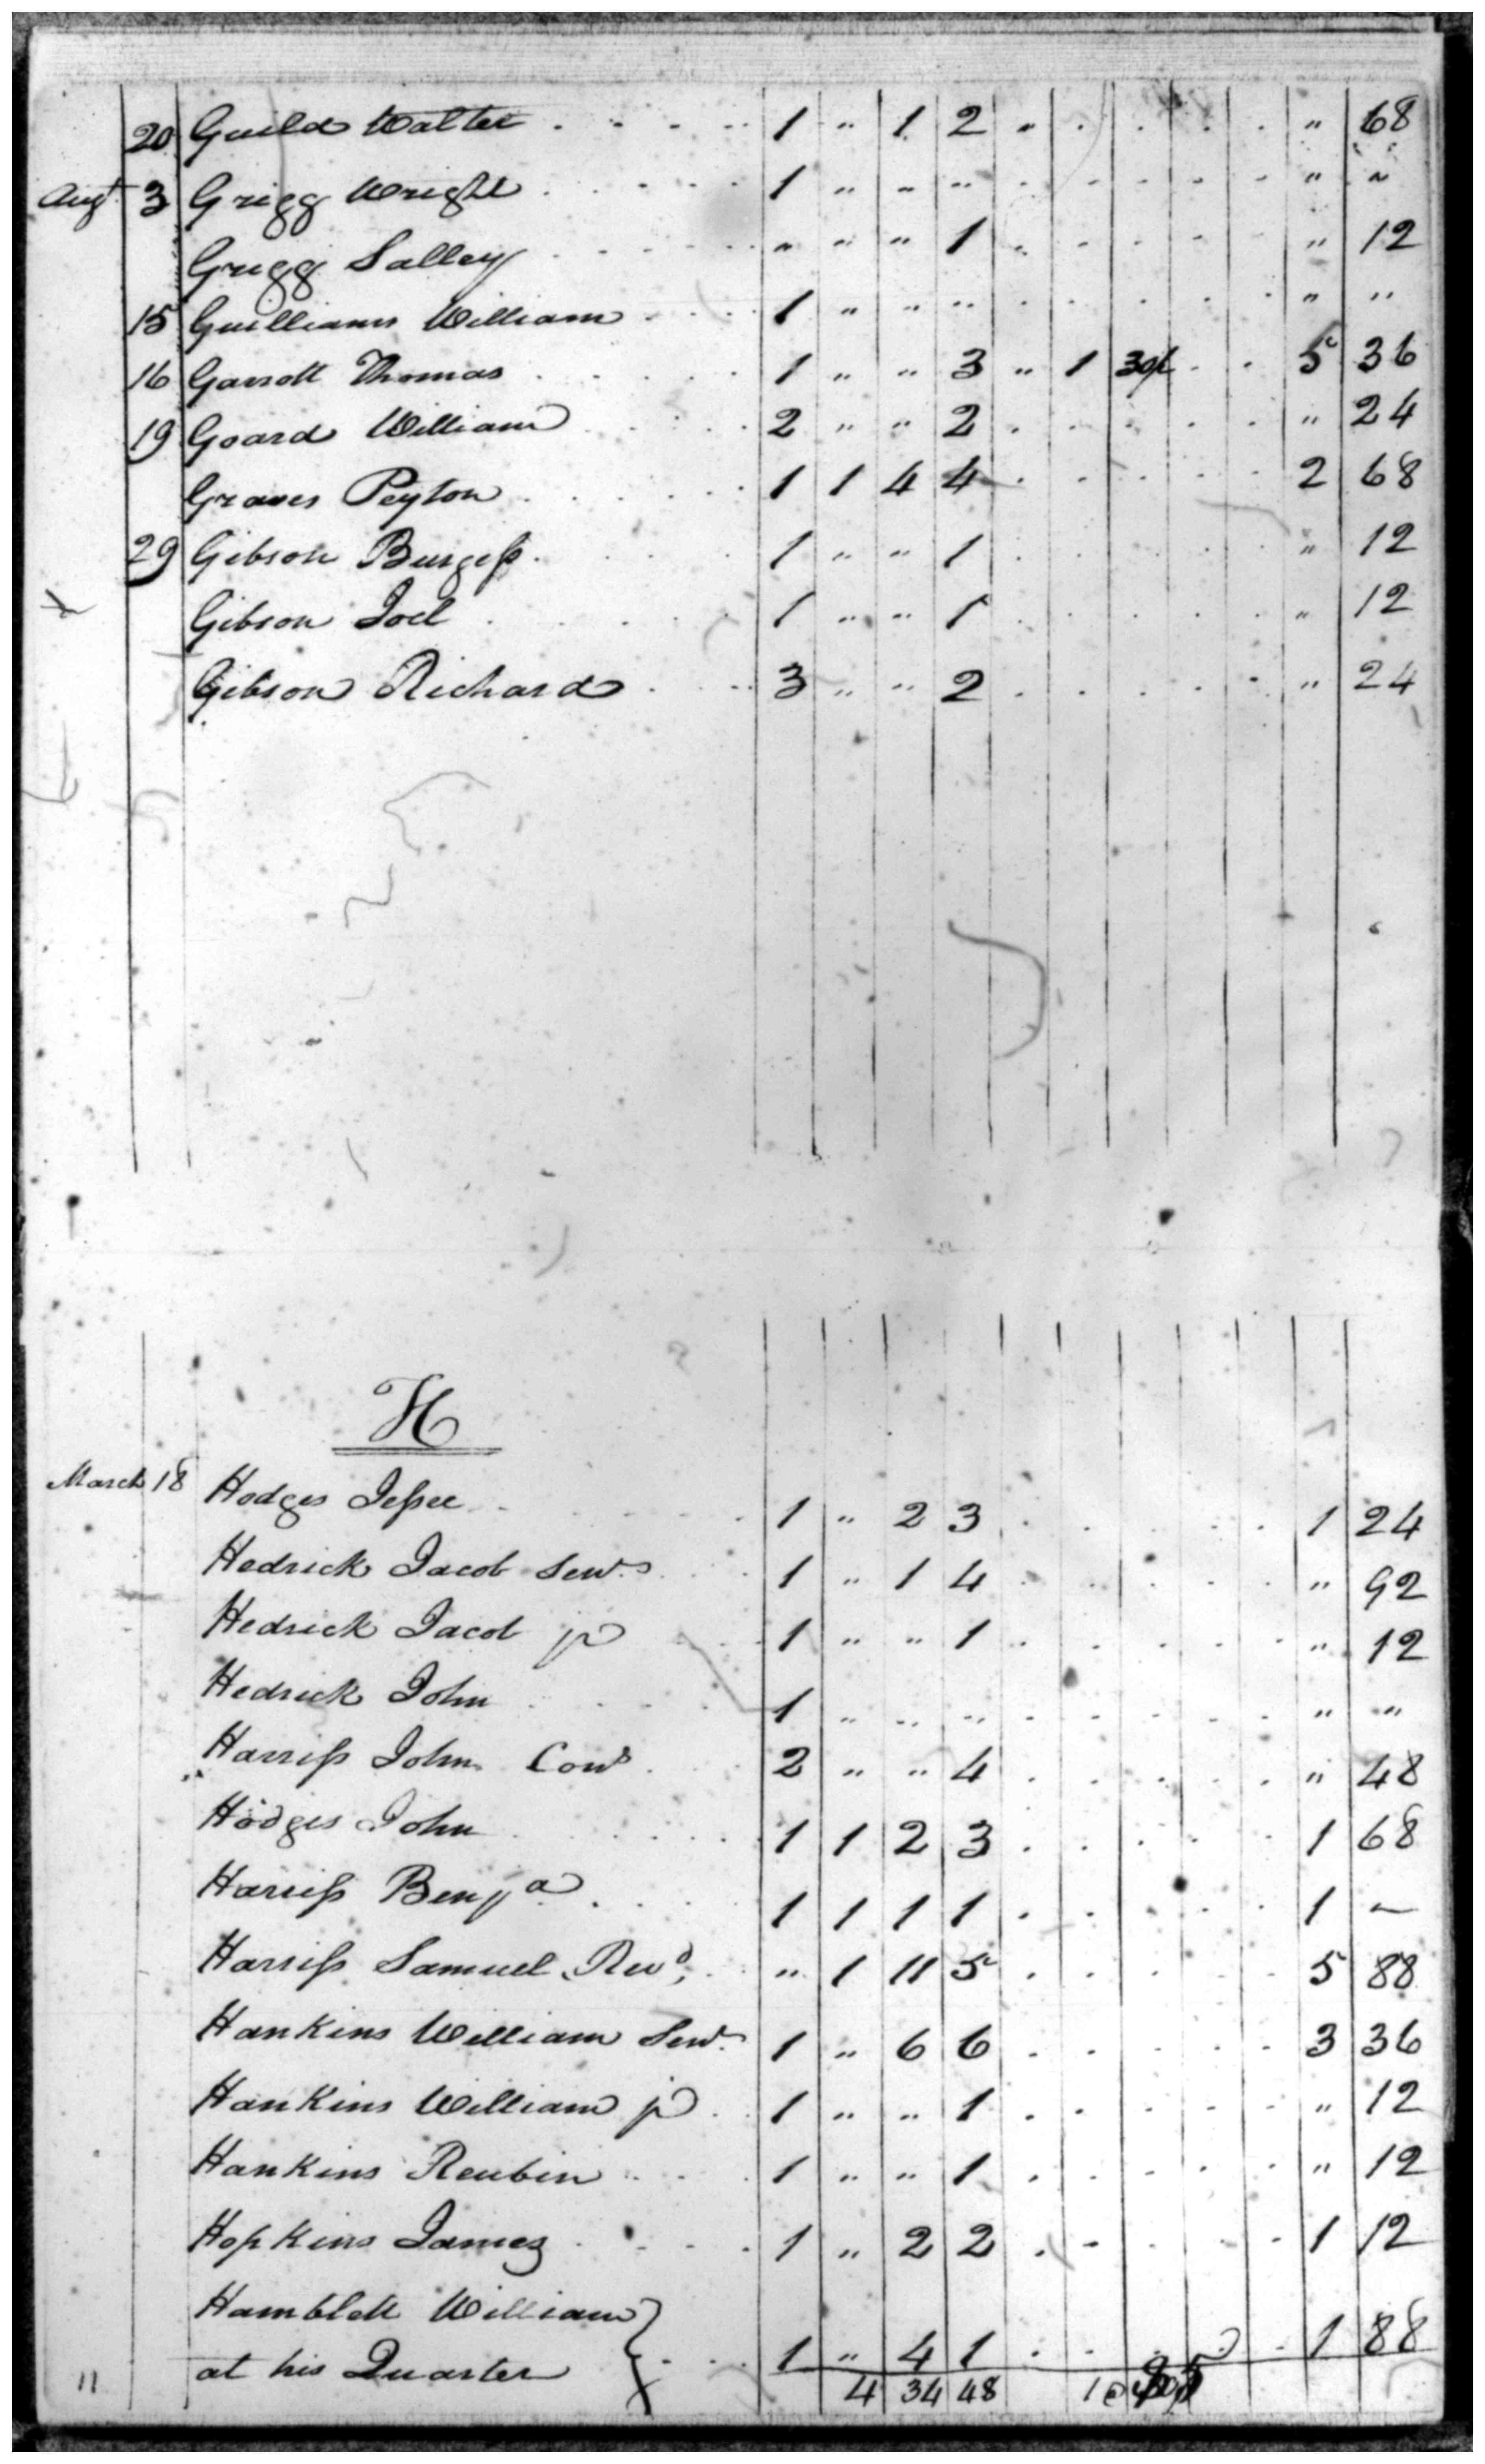 20 Guild Walter 1 " 1 2 " " 68
Augt 3 Grigg Wright 1 " " " " "
Grigg Salley " " " 1 " 12
15 Guilliams William 1 " " " " "
16 Garrott Thomas 1 " " 3 " 1 5 36
19 Goard William 2 " " 2 " 24
Graves Peyton 1 1 4 4 2 68
29 Gibson Burgess 1 " " 1 " 12
Gibson Joel 1 " " 1 " 12
Gibson Richard 3 " " 2 " 24
H
March 18 Hodges Jessee 1 " 2 3 1 24
Hedrick Jacob Senr 1 " 1 4 " 92
Hedrick Jacob jr 1 " " 1 " 12
Hedrick John 1 " " " " "
Harriss John 2 " " 4 " 48
Hodges John 1 1 2 3 1 68
Harriss Benja 1 1 1 1 1 —
Harriss Samuel Revd " 1 11 5 5 88
Hankins William Senr 1 " 6 6 3 36
Hankins William jr 1 " " 1 " 12
Hankins Reubin 1 " " 1 " 12
Hopkins James 1 " 2 2 1 12
Hamblett William
at his Quarter 1 " 4 1 1 88
11 4 34 48